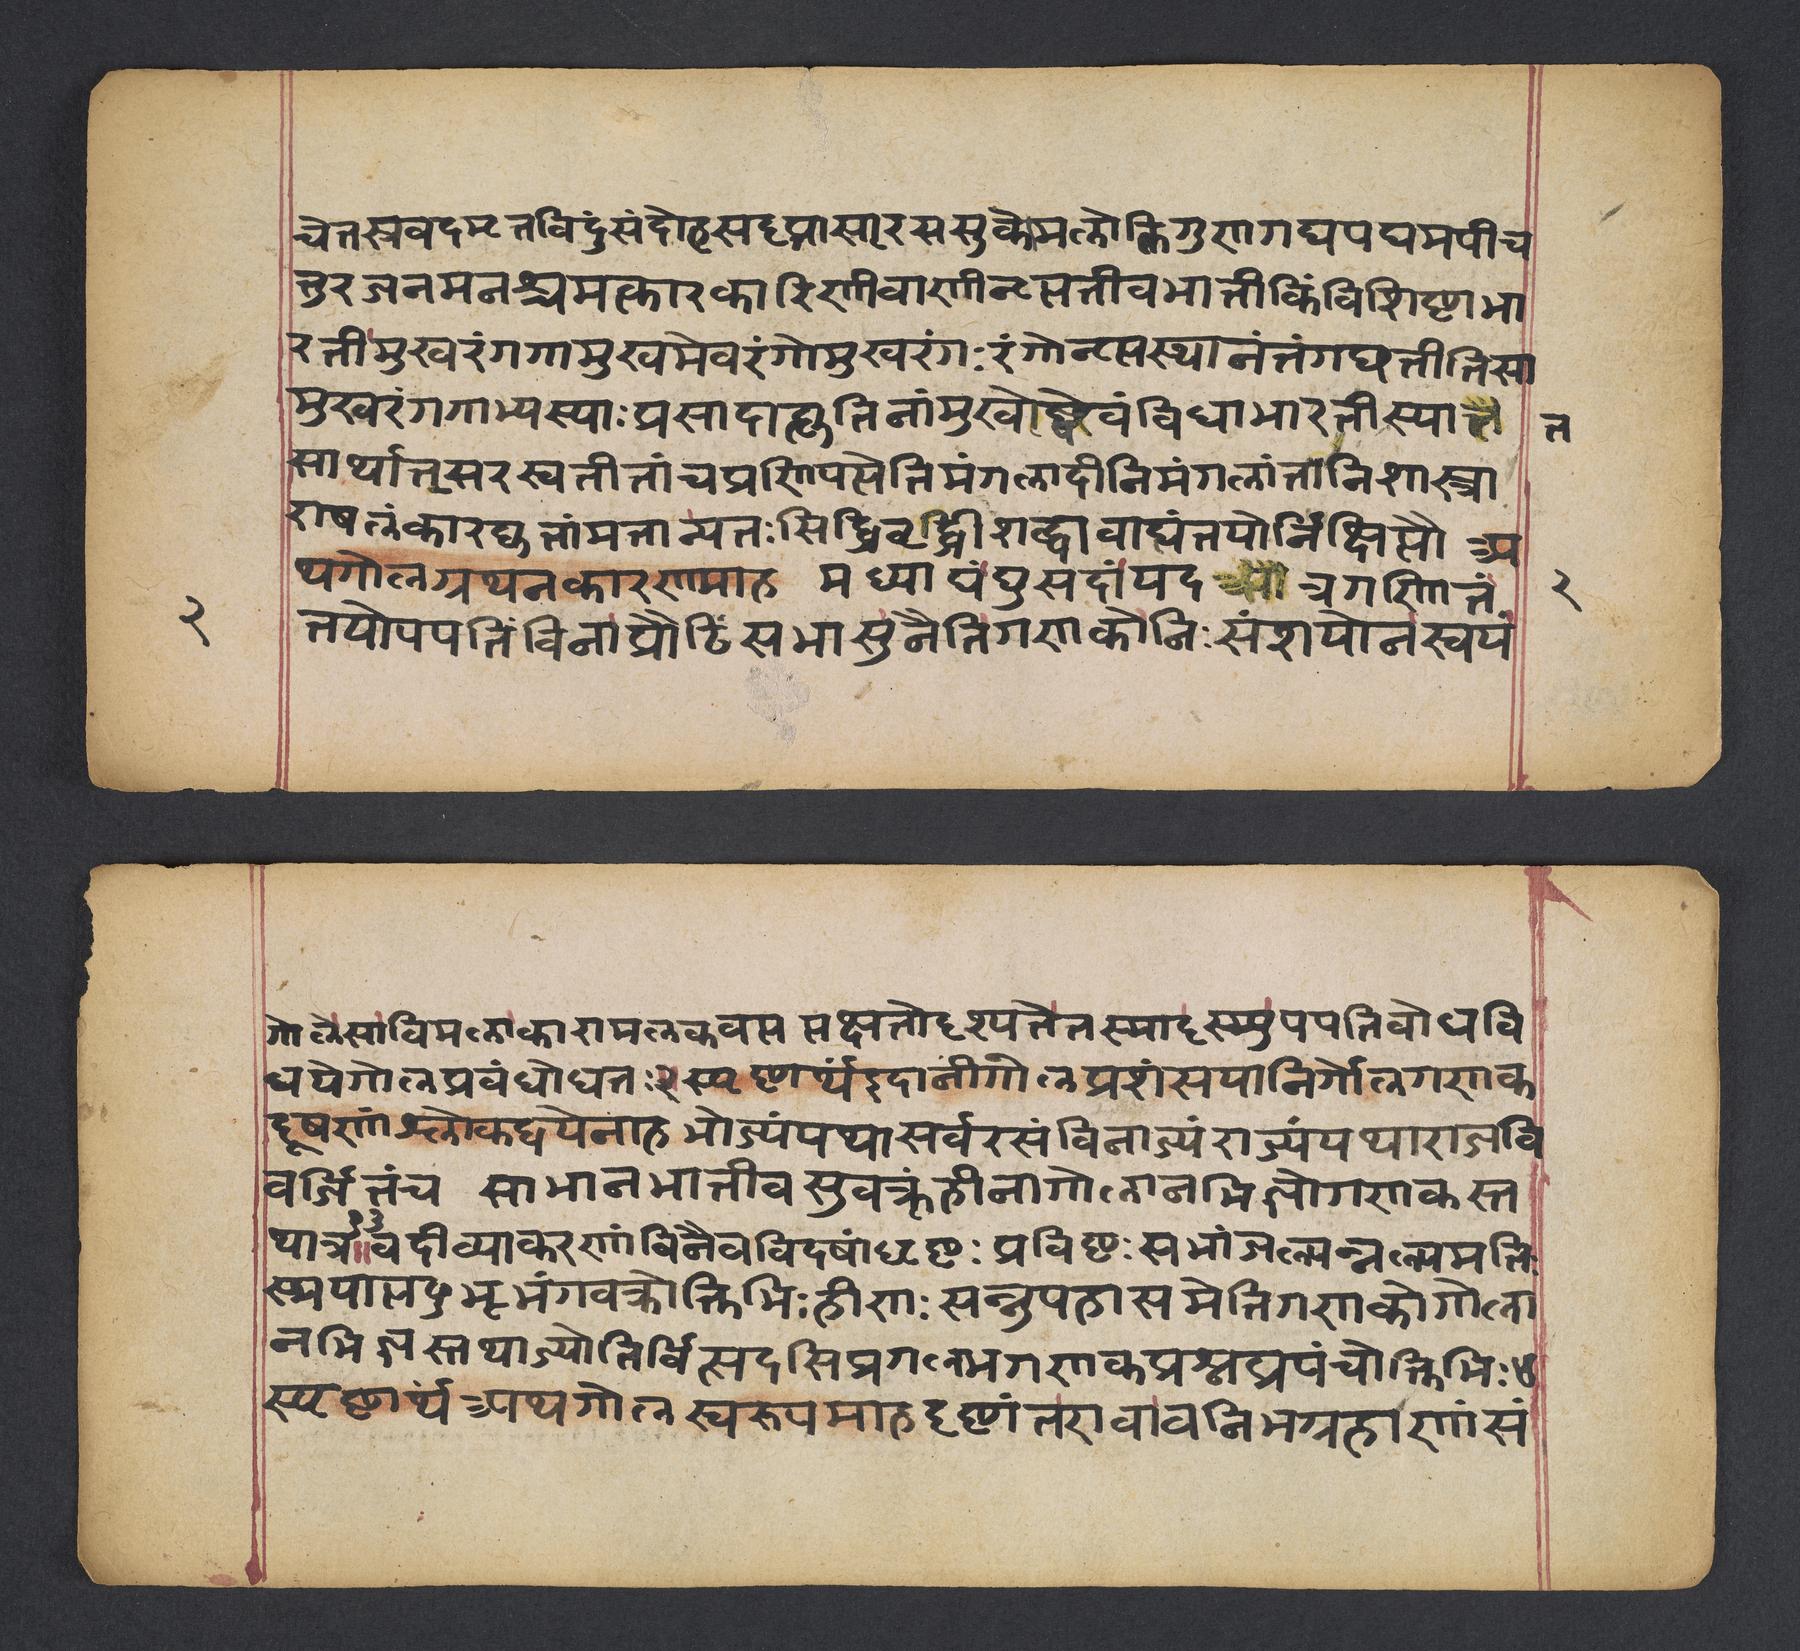 चेतस्रवदमृतविंदुसंदोहसदृशसारससुकोमलोक्तिगुणगद्यपद्यमयी च
तुरजनमनश्चमत्कारकारिणी वाणी नृत्यतीव भाति किंविशिष्टा भा
रती मुखरंगगा मुखमेव रंगो मुखरंगः रंगो नृत्यस्थानं तं गच्छतीति सा
मुखरंगगा यस्याः प्रसादात्कृतिनां मुखेष्वेवंविधा भारती स्यात्तै त
सार्थात् सरस्वती तां च प्रणिपत्येति मंगलादीनि मंगलांतानि शास्त्रा
ण्यलंकारकृतां मतान्यतः सिद्धिवृद्धीशब्दावाद्यंतयोर्निक्षिप्तौ अ
थ गोलग्रथनकारणमाह मध्याद्यं द्युसदां यद त्र गणितं
२ २
तस्योपपत्तिं विना प्रौढिं सभासु नैति गणको निःसंशयो न स्वयं
गोले सा विमला करामलकवत् प्रत्यक्षतो दृश्यते तस्मादस्म्युपपत्तिबोधवि
धये गोलप्रबंधोद्यतः २ स्पष्टार्थं इदानीं गोलप्रशंसया निर्गोलगणक
दूषणं श्लोकद्वयेनाह भोज्यं यथा सर्वरसं विनाज्यं राज्यं यथा राजवि
वर्जितं च सभा न भातीव सुवक्तृहीना गोलानभिज्ञो गणकस्त
थात्र ३ वादी व्याकरणं विनैव विदुषां धृष्टः प्रविष्टः सभां जल्पन्नल्पमतिः
स्मयात्पटुभ्रूभंगवक्रोक्तिभिः ह्रीणः सन्नुपहासमेति गणको गोला
नभिज्ञस्तथा ज्योतिर्वित्सदसि प्रगल्भगणकप्रश्नप्रपंचोक्तिभिः ४
स्पष्टार्थं अथ गोलस्वरूपमाह दृष्टांत एवावनिभग्रहाणां सं